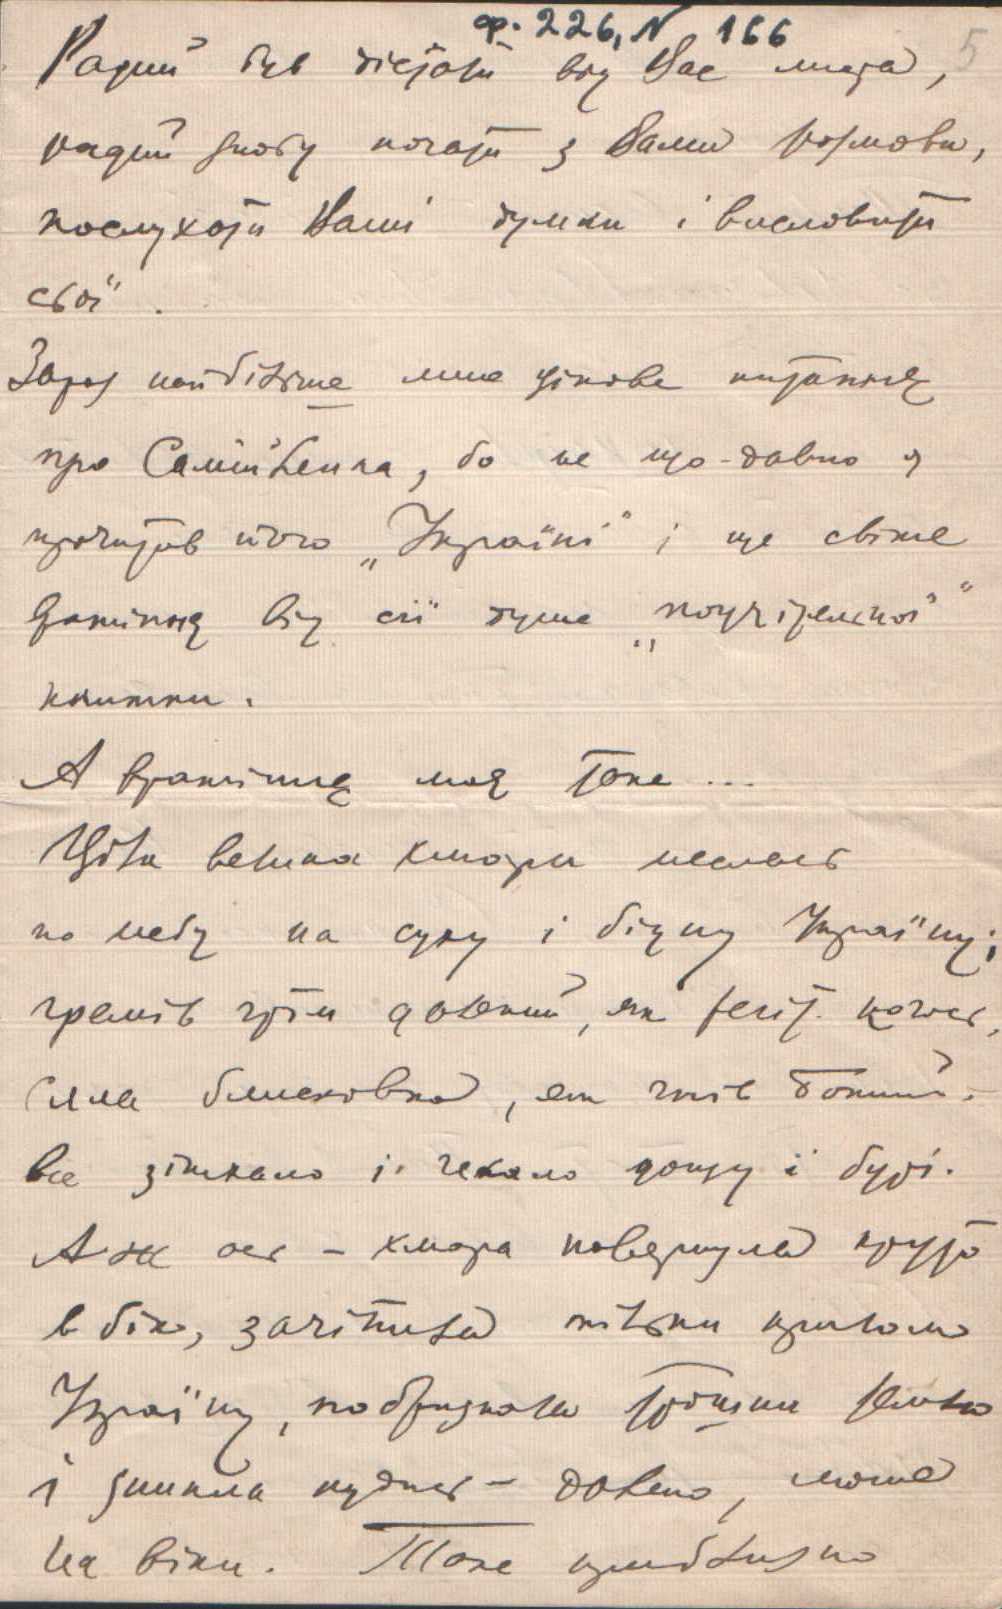 ф. 226, N 166
5
Радий був дістати від Вас листа,
радий знову почати з Вами розмови,
послухати Ваші думки і висловити
свої.
Зараз найбільше мене цікаве питання
про Самійленка, бо не що-давно я
прочитав його „Україні" і ще свіже
вражіння від сії дуже „поучітельної"
книжки.
А вражіння моя таке ...
Ціла велика хмара неслась
по небу на суху і бідну Україну;
гремів грім далекий, як
сяла блисковка, як гнів Божий.
все зітхало і чекало дощу і бурі.
Аж ось – хмара повернула круто
в бік, зачіпила тільки крилом
Україну, побризкала трошки землю
і зникла кудись – далеко, може
на віки. Таке приблизно